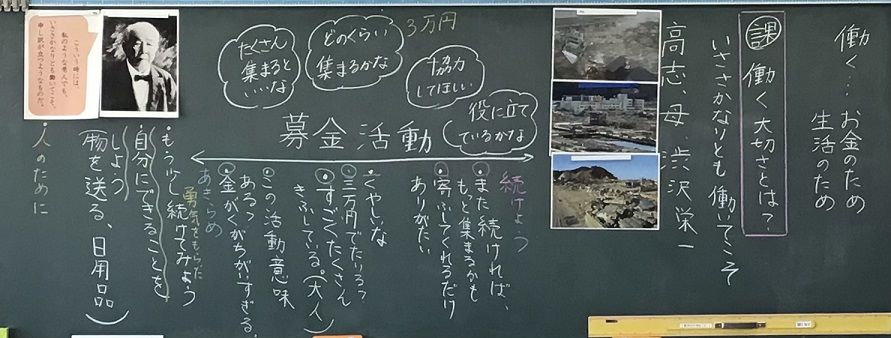 働く…お金のため
生活のため
課 働く大切さとは？
いささかなりとも働いてこそ
高志、母、渋沢栄一
3万円
どのくらい
集まるかな
たくさん
集まると
いいな
協力
してほしい
役に立て
ているかな
募金活動
続けよう
・また続ければ、
もっと集まるかも
・寄ふしてくれるだけ
ありがたい
・くやしいな
・三万円でたりる？
・すごくたくさん
きふしている。(大人)
・この活動意味
ある？
・金がくがちがいすぎる。
あきらめ
勇気をもらった
・もう少し続けてみよう
・自分にできることを
しよう
(物を送る、日用品)
・人のために
こういう時には、
私のような老人でも、
いささかなりとも働いてこそ、
申し訳が立つようなものだ。